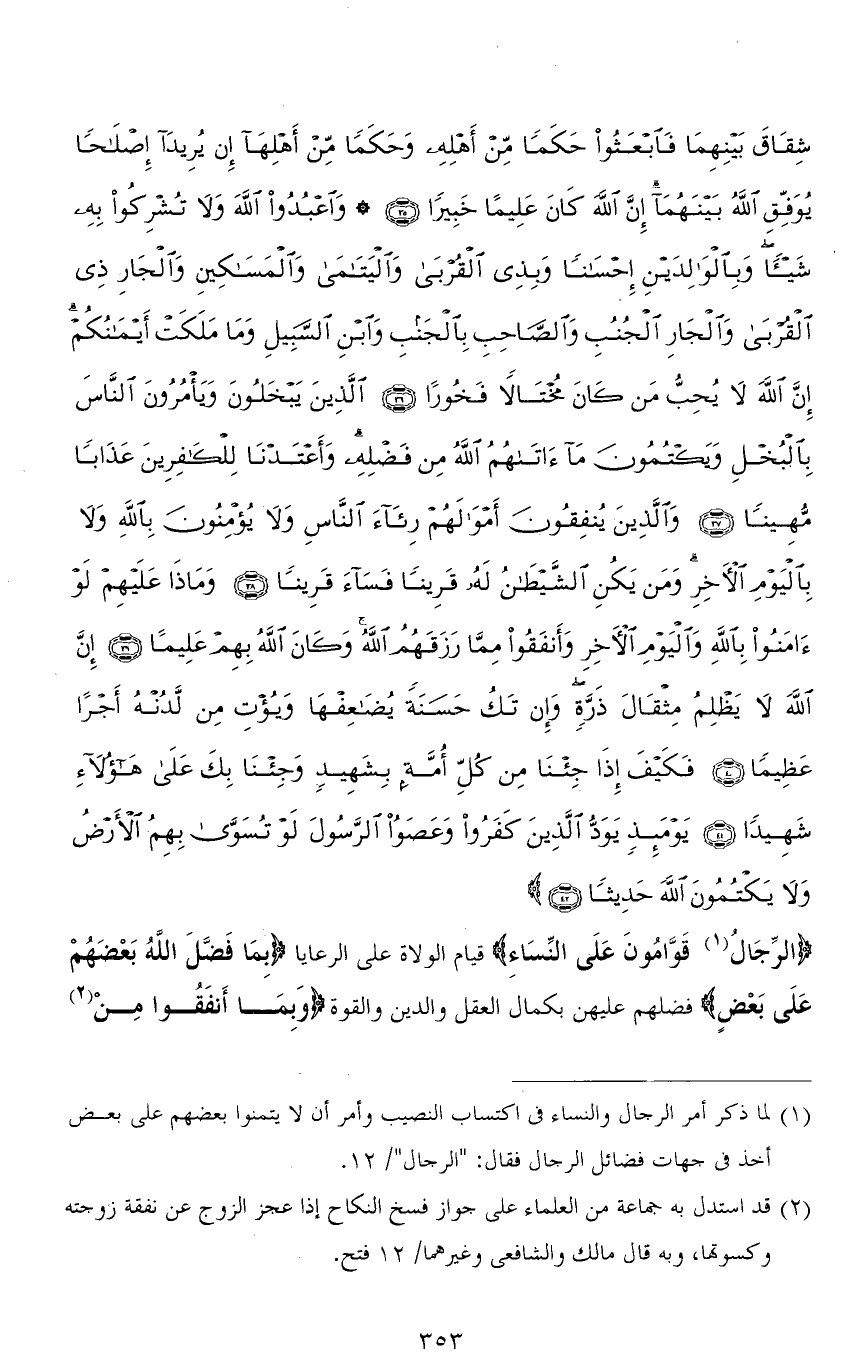 شِقَاقَ بَيْنِهِمَا فَٱبْعَثُوا۟ حَكَمًا مِّنْ أَهْلِهِۦ وَحَكَمًا مِّنْ أَهْلِهَآ إِن يُرِيدَآ إِصْلَـٰحًا
يُوَفِّقِ ٱللَّهُ بَيْنَهُمَآ ۗ إِنَّ ٱللَّهَ كَانَ عَلِيمًا خَبِيرًا ٣٥ ۞ وَٱعْبُدُوا۟ ٱللَّهَ وَلَا تُشْرِكُوا۟ بِهِۦ
شَيْـًٔا ۖ وَبِٱلْوَٰلِدَيْنِ إِحْسَـٰنًا وَبِذِى ٱلْقُرْبَىٰ وَٱلْيَتَـٰمَىٰ وَٱلْمَسَـٰكِينِ وَٱلْجَارِ ذِى
ٱلْقُرْبَىٰ وَٱلْجَارِ ٱلْجُنُبِ وَٱلصَّاحِبِ بِٱلْجَنۢبِ وَٱبْنِ ٱلسَّبِيلِ وَمَا مَلَكَتْ أَيْمَـٰنُكُمْ ۗ
إِنَّ ٱللَّهَ لَا يُحِبُّ مَن كَانَ مُخْتَالًا فَخُورًا ٣٦ ٱلَّذِينَ يَبْخَلُونَ وَيَأْمُرُونَ ٱلنَّاسَ
بِٱلْبُخْلِ وَيَكْتُمُونَ مَآ ءَاتَىٰهُمُ ٱللَّهُ مِن فَضْلِهِۦ ۗ وَأَعْتَدْنَا لِلْكَـٰفِرِينَ عَذَابًا
مُّهِينًا ٣٧ وَٱلَّذِينَ يُنفِقُونَ أَمْوَٰلَهُمْ رِئَآءَ ٱلنَّاسِ وَلَا يُؤْمِنُونَ بِٱللَّهِ وَلَا
بِٱلْيَوْمِ ٱلْـَٔاخِرِ ۗ وَمَن يَكُنِ ٱلشَّيْطَـٰنُ لَهُۥ قَرِينًا فَسَآءَ قَرِينًا ٣٨ وَمَاذَا عَلَيْهِمْ لَوْ
ءَامَنُوا۟ بِٱللَّهِ وَٱلْيَوْمِ ٱلْـَٔاخِرِ وَأَنفَقُوا۟ مِمَّا رَزَقَهُمُ ٱللَّهُ ۚ وَكَانَ ٱللَّهُ بِهِمْ عَلِيمًا ٣٩ إِنَّ
ٱللَّهَ لَا يَظْلِمُ مِثْقَالَ ذَرَّةٍ ۖ وَإِن تَكُ حَسَنَةً يُضَـٰعِفْهَا وَيُؤْتِ مِن لَّدُنْهُ أَجْرًا
عَظِيمًا ٤٠ فَكَيْفَ إِذَا جِئْنَا مِن كُلِّ أُمَّةٍۭ بِشَهِيدٍ وَجِئْنَا بِكَ عَلَىٰ هَـٰٓؤُلَآءِ
شَهِيدًا ٤١ يَوْمَئِذٍ يَوَدُّ ٱلَّذِينَ كَفَرُوا۟ وَعَصَوُا۟ ٱلرَّسُولَ لَوْ تُسَوَّىٰ بِهِمُ ٱلْأَرْضُ
وَلَا يَكْتُمُونَ ٱللَّهَ حَدِيثًا ٤٢﴾
﴿الرِّجَالُ(١) قَوَّامُونَ عَلَى النِّسَاءِ﴾ قيام الولاة على الرعايا ﴿بِمَا فَضَّلَ اللَّهُ بَعْضَهُمْ
عَلَى بَعْضٍ﴾ فضلهم عليهن بكمال العقل والدين والقوة ﴿وَبِمَا أَنفَقُوا مِنْ(٢)
(١) لما ذكر أمر الرجال والنساء فى اكتساب النصيب وأمر أن لا يتمنوا بعضهم على بعض
أخذ فى جهات فضائل الرجال فقال: "الرجال"/ ١٢.
(٢) قد استدل به جماعة من العلماء على جواز فسخ النكاح إذا عجز الزوج عن نفقة زوجته
وكسوتها، وبه قال مالك والشافعى وغيرهما/ ١٢ فتح.
٣٥٣